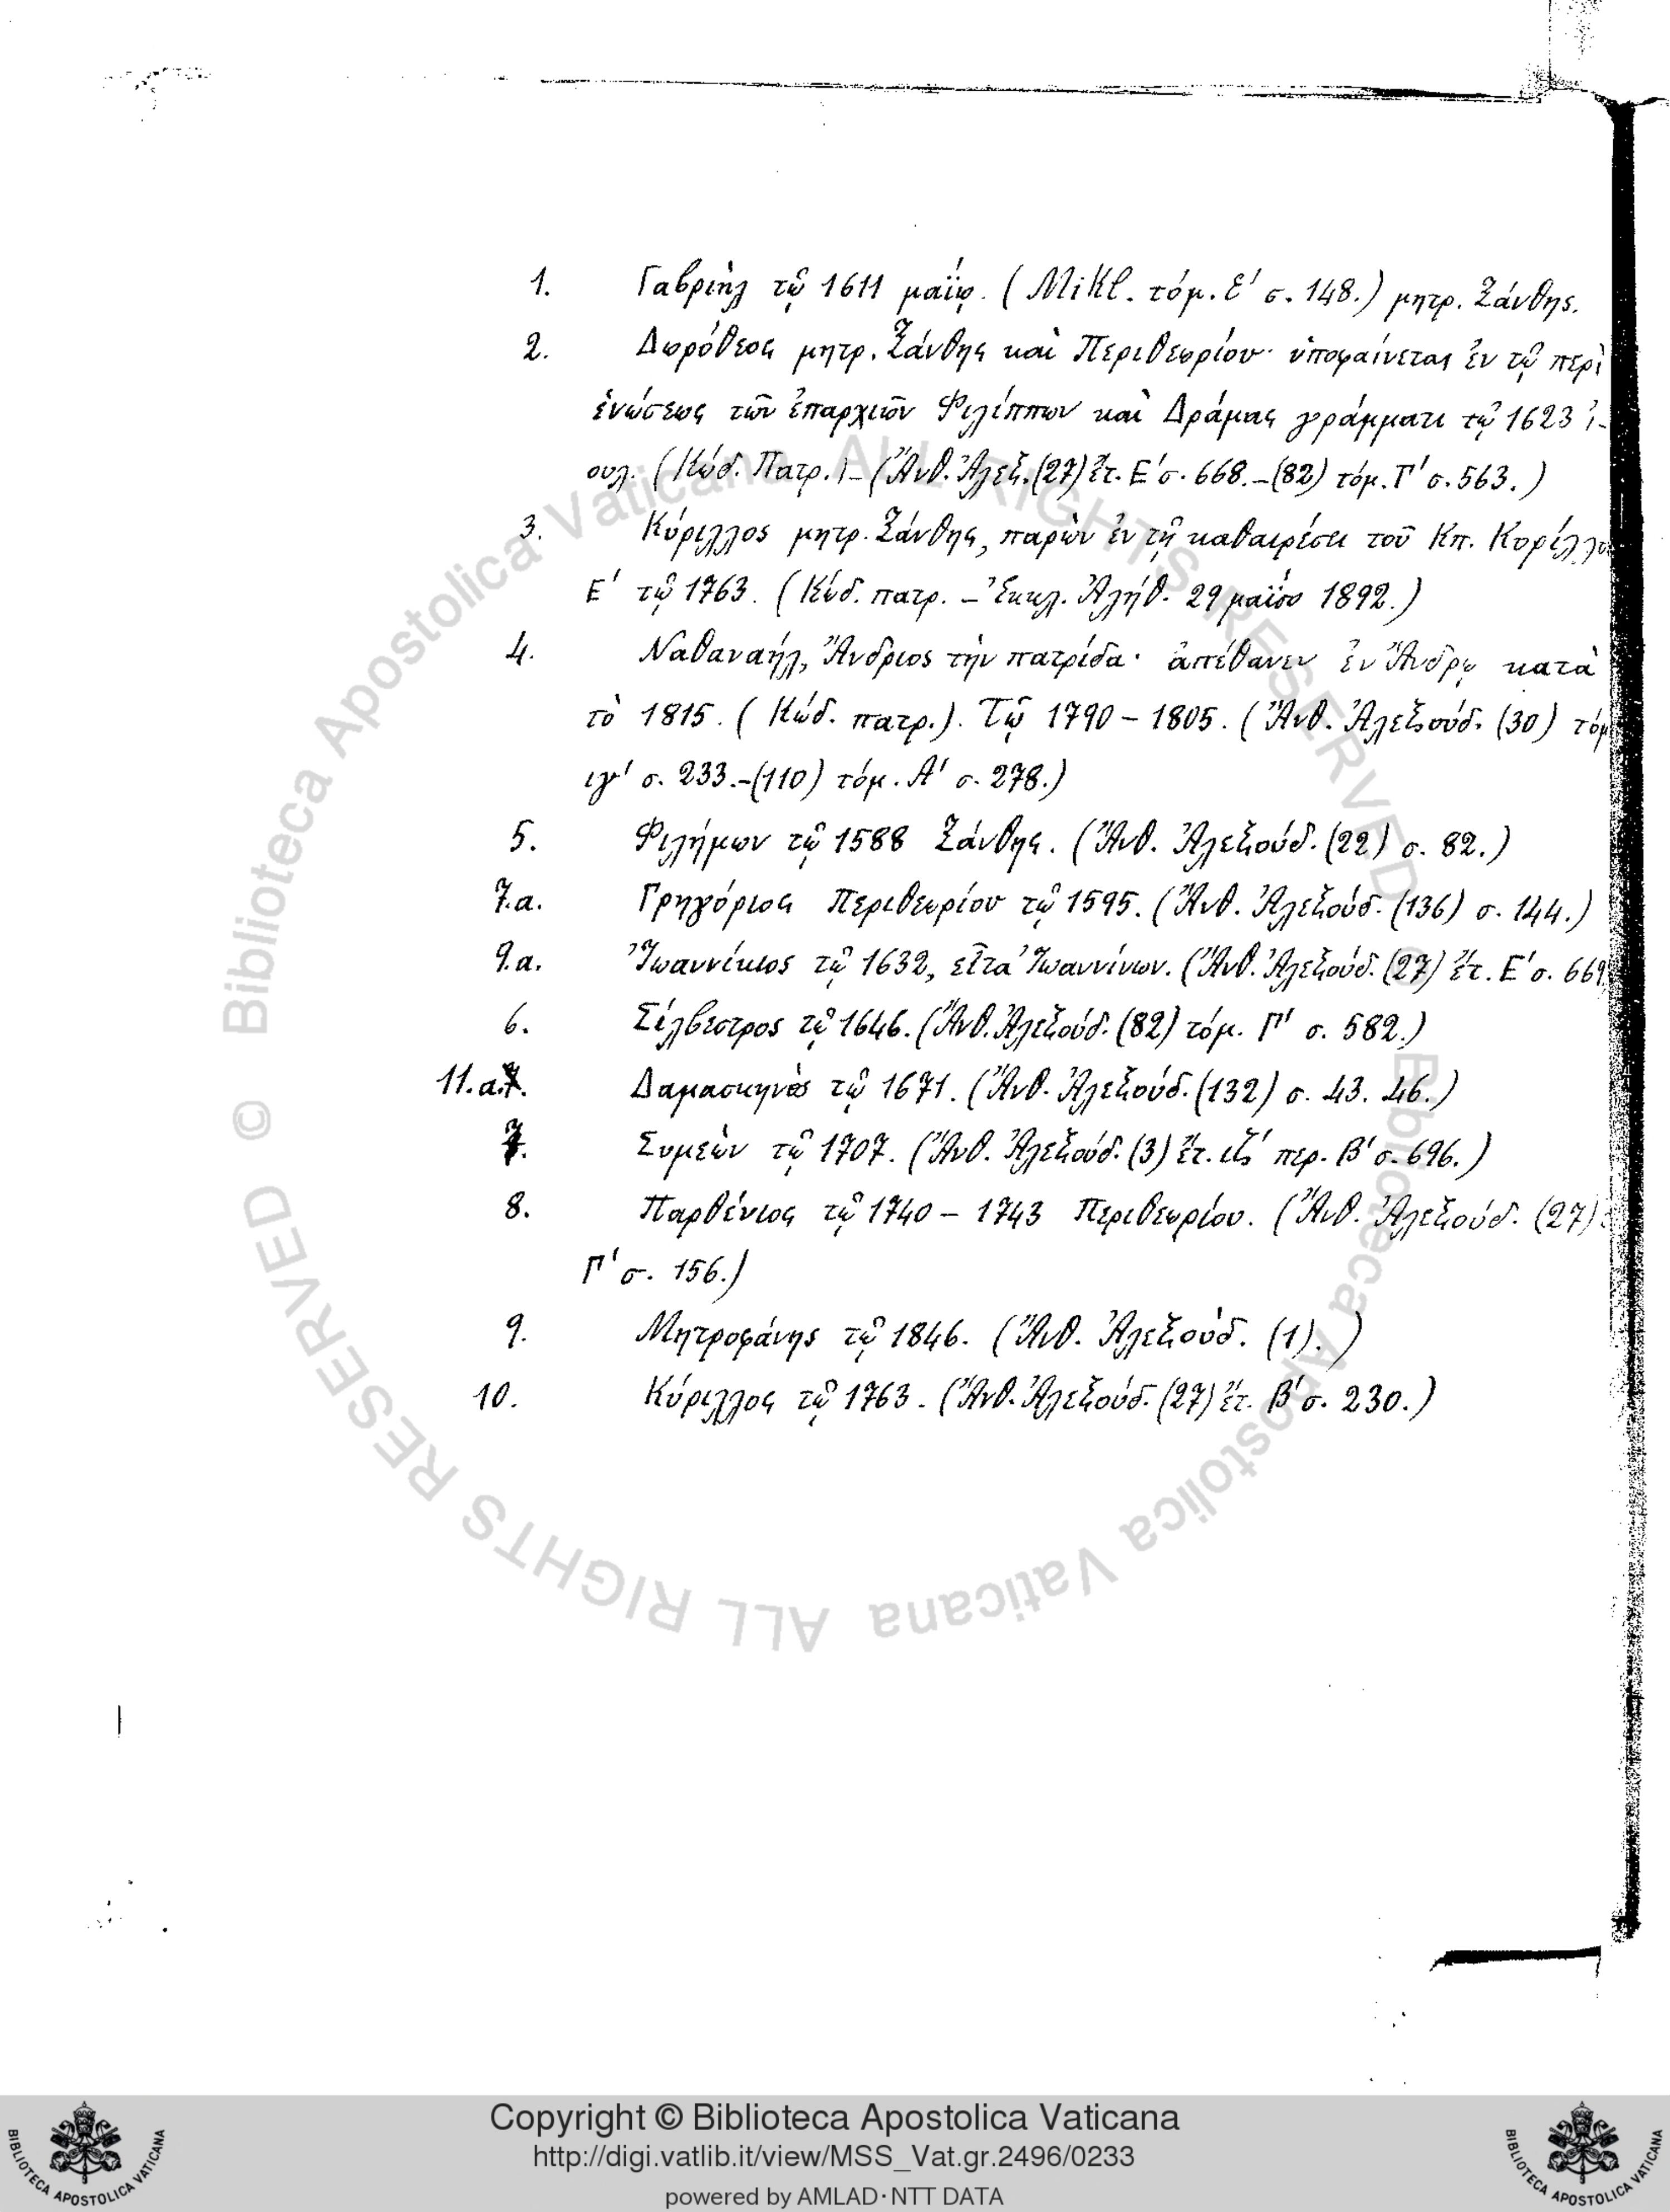 1. Γαβριὴλ τῷ 1611 μαΐῳ. (Mikl. τόμ. Ε' σ. 148.) μητρ. Ξάνθης.
2. Δωρόθεος μητρ. Ξάνθης καὶ Περιθεωρίου· ὑποφαίνεται ἐν τῷ περὶ
ἑνώσεως τῶν ἐπαρχιῶν Φιλίππων καὶ Δράμας γράμματι τῷ 1623 ἰ-
ουλ. (Κώδ. Πατρ.) – (Ἄνθ. Ἀλεξ. (27) ἔτ. Ε' σ. 668. – (82) τόμ. Γ' σ. 563.)
3. Κύριλλος μητρ. Ξάνθης, παρὼν ἐν τῇ καθαιρέσει τοῦ Κπ. Κυρίλλου
Ε' τῷ 1763. (Κώδ. πατρ. – Ἐκκλ. Ἀλήθ. 29 μαΐου 1892.)
4. Ναθαναήλ, Ἄνδριος τὴν πατρίδα· ἀπέθανεν ἐν Ἄνδρῳ κατὰ
τὸ 1815. (Κώδ. πατρ.). Τῷ 1790 – 1805. (Ἄνθ. Ἀλεξούδ. (30) τόμ
ιγ' σ. 233. – (110) τόμ. Α' σ. 278.)
5. Φιλήμων τῷ 1588 Ξάνθης. (Ἄνθ. Ἀλεξούδ. (22) σ. 82.)
7.α. Γρηγόριος Περιθεωρίου τῷ 1595. (Ἄνθ. Ἀλεξούδ. (136) σ. 144.)
9.α. Ἰωαννίκιος τῷ 1632, εἶτα Ἰωαννίνων. (Ἄνθ. Ἀλεξούδ. (27) ἔτ. Ε' σ. 669
6. Σίλβεστρος τῷ 1646. (Ἄνθ. Ἀλεξούδ. (82) τόμ. Γ' σ. 582.)
11.α. Δαμασκηνὸς τῷ 1671. (Ἄνθ. Ἀλεξούδ. (132) σ. 43. 46.)
7. Συμεὼν τῷ 1707. (Ἄνθ. Ἀλεξούδ. (3) ἔτ. ις' περ. Β' σ. 696.)
8. Παρθένιος τῷ 1740 – 1743 Περιθεωρίου. (Ἄνθ. Ἀλεξούδ. (27)
Γ' σ. 156.)
9. Μητροφάνης τῷ 1846. (Ἄνθ. Ἀλεξούδ. (1).)
10. Κύριλλος τῷ 1763. (Ἄνθ. Ἀλεξούδ. (27) ἔτ. Β' σ. 230.)
© Biblioteca Apostolica Vaticana ALL RIGHTS RESERVED
© Biblioteca Apostolica Vaticana ALL RIGHTS RESERVED
Copyright © Biblioteca Apostolica Vaticana
http://digi.vatlib.it/view/MSS_Vat.gr.2496/0233
powered by AMLAD·NTT DATA
BIBLIOTECA APOSTOLICA VATICANA
BIBLIOTECA APOSTOLICA VATICANA